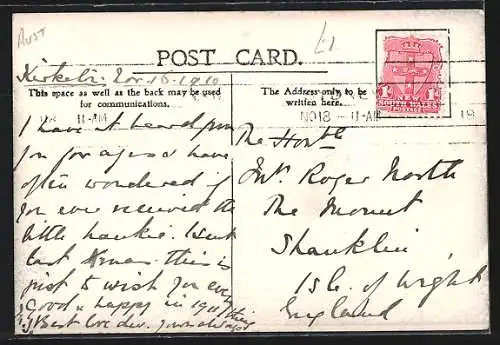 AUST
£1
POST CARD.
Nov. 18. 1910
This space as well as the back may be used
for communications.
The Address only to be
written here.
11-AM
NO18 - 11-AM
18
1D NEW 1D
SOUTH WALES
POSTAGE
I have not heard from
you for ages & have
often wondered if
you ever received the
little hankie I sent
last Xmas. this is
just to wish you every
Good & happy in 1911
Best love dear. yours always
thing
The Honble
Mrs Roger North
The Mount
Shanklin
Isle of Wight
England